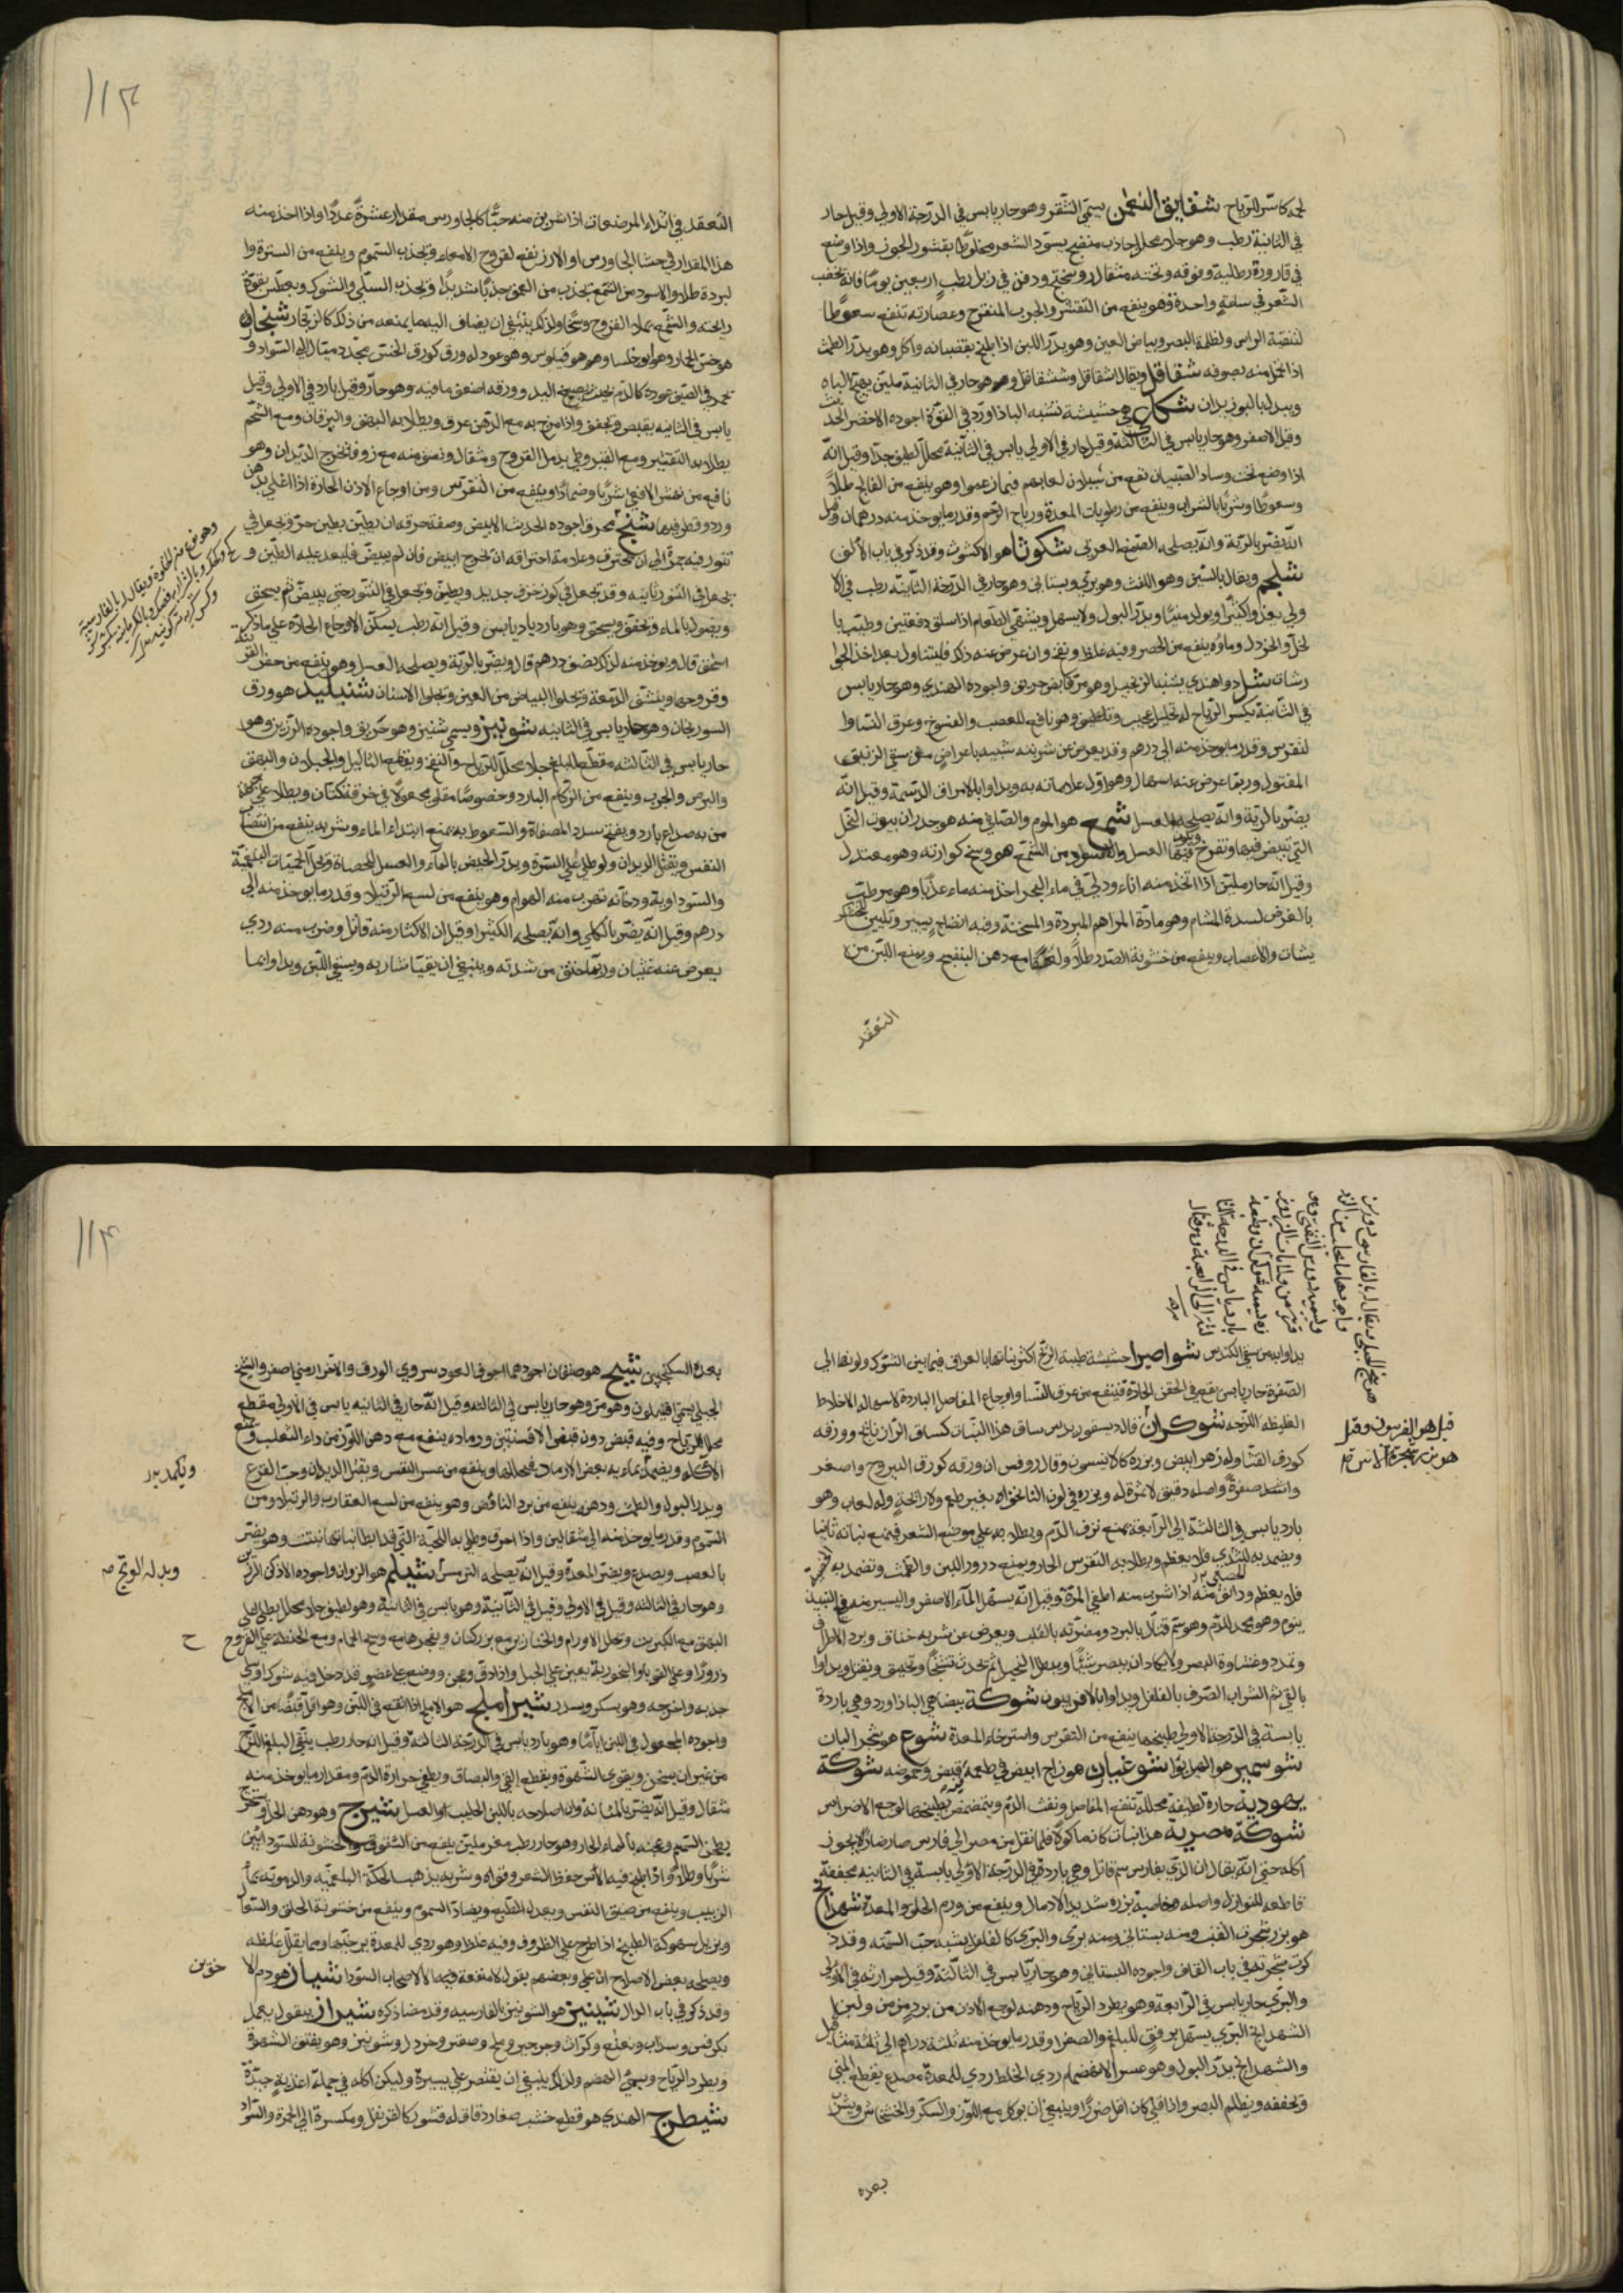 لحمه كاسر للرياح شقايق النعمن يسمى الشقر وهو حار يابس في الدرجة الاولى وقيل حار
في الثانية رطب وهو جلاء محلل جاذب منضج يسود الشعر مخلوطا بقشور الجوز واذا وضع
في قارورة رطلية وفوقه وتحته مثقال روسختج ودفن في زبل رطب اربعين يوما فانه يخضب
الشعر في ساعة واحدة وهو ينفع من التقشر والجرب المتقرح وعصارته تنفع سعوطا
لتنقية الراس ولظلمة البصر وبياض العين وهو يدر اللبن اذا طبخ بقضبانه واكل وهو يدر الطمث
اذا احتمل منه بصوفه شقاقل ويقال اشقاقل وششقاقل وهو حار في الثانية ملين يهيج الباه
ويبدل بالبوزيدان شكاعى هي حشيشة تشبه الباذاورد في القوة اجوده الاخضر الحديث
وقيل الاصفر وهو حار يابس في الثالثة وقيل حار في الاولى يابس في الثانية محلل لطيف جدا وقيل انه
اذا وضع تحت وساد الصبيان نفع من سيلان لعابهم فيما زعموا وهو ينفع من الفالج طلاء
وسعوطا وشربا بالشراب وينفع من رطوبات المعدة ورياح الرحم وقدر ما يوخذ منه درهمان وقيل
انه يضر بالرية وانه يصلحه الصمغ العربى شكوثا هو الاكشوث وقد ذكر في باب الالف
شلجم ويقال بالسين وهو اللفت وهو بري وبستاني وهو حار في الدرجة الثانية رطب في الا
ولى يغذ واكثيرا ويولد منيا ويدر البول ولا يسهل ويشهي الطعام اذا سلق دفعتين وطيب با
لخل والخردل وماؤه ينفع من الحصر وفيه غلظ ونفخ وان عرض عنه ذلك فليتناول بعد اخذ الجوا
رشات شل دوا هندي يشبه الزنجبيل وهو مر قابض حريف واجوده الهندي وهو حار يابس
في الثانية يكسر الرياح له تحليل عجيب وتلطيف وهو نافع للعصب والفسوخ وعرق النساوا
لنقرس وقدر ما يوخذ منه الى درهم وقد يعرض عن شربته شبيه باعراض من سقي الزنبق
المقتول وربما عرض عنه اسهال وهو اول علاماته به ويداوا بالامراق الدسمة وقيل انه
يضر بالرية وانه يصلحه العسل شمع هو الموم والصافي منه هو جدران بيوت النحل
التي تبيض فيها وتفرخ ويكون فيها العسل والاسود من الشمع هو وسخ كوارته وهو معتدل
وقيل انه حار ملين اذا اتخذ منه اناء ودلي في ماء البحر اخذ منه ماء عذبا وهو مرطب
بالعرض لسدة المشام وهو مادة المراهم المبردة والمسخنة وفيه انضاج يسير وتليين للخشكر
يشات والاعصاب وينفع من خشونة الصدر طلاء ولعقا مع دهن البنفسج ويمنع اللبن من
التعقد
١١٣
التعقد في اثداء المرضعات اذا شربن منه حبا كالجاورس مقدار عشرة عددا واذا اخذ منه
هذا المقدار في حشا الجاورس او الارز نفع لقروح الامعاء ويجذب السموم وينفع من السترة وا
لبردة طلا والاسود من الشمع يجذب من العمق جذبا شديدا ويجذب السلى والشوك ويعطس بقوة
رايحته والشمع يملا القروح وسخا ولذلك ينبغي ان يضاف اليه ما يمنعه من ذلك كالزنجار شنجار
هو خس الحمار وهو ابو خلسا وهو هو فيلوس وهو عود له ورق كورق الخس محدد ميال الى السواد و
يحمر في الصيف عوده كالدم بحيث يصبغ اليد وورقه اضعف ما فيه وهو حار وقيل بارد في الاولى وقيل
يابس في الثانية يقبض ويجفف واذا مزج به مع الدهن عرق ويطلا به البهق واليرقان ومع الشحم
يطلا به التقشر ومع القيروطي يدمل القروح ومثقال ونصف منه مع زوفا يخرج الديدان وهو
نافع من نهش الافعى شربا وضمادا وينفع من النقرس ومن اوجاع الاذن الحارة اذا اغلي بدهن
ورد وقطر فيها شنج محرق اجوده الحديث الابيض وصفة حرقه ان يطين بطين حر ويجعل في
تنور فيه جمر الى ان يحترق وعلامة احتراقه ان يخرج ابيض فان لم يبيض فليعد عليه الطين و
يجعل في التنور ثانية وقد يجعل في كوز خزف جديد ويطين ويجعل في التنور حتى يبيض ثم يسحق
ويصول بالماء ويجفف ويسحق وهو بارد يابس وقيل انه رطب يسكن الاوجاع الحادة على ما ذكر
اسحق قال ويوخذ منه لذلك نصف درهم قال ويضر بالرية ويصلحه العسل وهو ينفع من حفر القرنية
وقروحها وينشف الدمعة ويجلوا البياض من العين ويجلوا الاسنان شنبليد هو ورق
السورنجان وهو حار يابس في الثانية شونيز ويسمى شنيز وهو حريف واجوده الرزين وهو
حار يابس في الثالثه مقطع للبلغم جلاء محلل للرياح والنفخ ويقطع الثاليل والخيلان والبهق
والبرص والجرب وينفع من الزكام البارد وخصوصا مقلو مجعولا في خرقة كتان ويطلا على جبهة
من به صداع بارد ويفتح سدد المصفاة والسعوط به يمنع ابتداء الماء وشربه ينفع من انتصاب
النفس ويقتل الديدان ولو طلي على السرة ويدر الحيض بالماء والعسل للحصاة ويحل الحميات البلغمية
والسوداوية ودخانه تهرب منه الهوام وهو ينفع من لسع الرتيلا وقدر ما يوخذ منه الى
درهم وقيل انه يضر بالكلى وانه يصلحه الكثيرا وقيل ان الاكثار منه قاتل وضرب منه ردي
يعرض عنه غثيان وربما خنق من شدته وينبغي ان يقيا شاربه ويسقي اللبن ويداوا بما
يداوا به من سقي الكندس شواصرا حشيشة طيبة الريح اكثر نباتها بالعراق فيما بين الشوك ولونها الى
الصفرة حار يابس يقع في الحقن الحادة فينفع من عرق النسا واوجاع المفاصل الباردة لاسهاله الاخلاط
الغليظه اللزجه شوكران قال ديسقوريدس ساق هذا النبات كساق الرازيانج وورقه
كورق القثا وله زهر ابيض وبزره كالانيسون وقال روفس ان ورقه كورق اليبروح واصغر
واشد صفرة واصله دقيق لا ثمرة له وبزره في لون النانخواه بغير طعم ولا رائحة وله لعاب وهو
بارد يابس في الثالثة الى الرابعة يمنع نزف الدم ويطلا به على موضع الشعر فيمنع نباته ثانيا
ويضمد به للثدي فلا يعظم ويطلا به النقرس الحار ويمنع درور اللبن والطمث ويضمد به
فلا يعظم ودانق منه اذا شرب منه اطفي المرة وقيل انه يسهل الماء الاصفر واليسير منه في النبيذ
ينوم وهو يجمد الدم وهو سم قتال بالبرد ومضرته بالقلب ويعرض عن شربه خناق وبرد الاطراف
وتمدد وغشاوة البصر ولا يكاد ان يبصر شيئا ويبطل التخيل ثم يحدث تشنجا وتخنيق ويقتل ويداوا
بالقي ثم الشراب الصرف بالفلفل ويداوا بالافربيون شوكة بيضا هي الباذاورد وهي باردة
يابسة في الدرجة الاولى طبيخها ينفع من النقرس واسترخاء المعدة شوع هو شجر البان
شوسمير هو الهيل بوا شوغبار هو زاج ابيض في طعمه قبض وحموضة شوكة
يهودية حارة لطيفة محللة تنفع المفاصل ونفث الدم ويتمضمض بطبيخها لوجع الاضراس
شوكة مصرية هذا نبات كان ماكولا فلما نقل من مصر الى فارس صار ضارا لا يجوز
اكله حتى انه يقال ان الذي بفارس سم قاتل وهي باردة في الدرجة الاولى يابسة في الثانية مجففة
قاطعه للنوازل واصله خاصية بزره شديد الادمال وينفع من ورم الحلق والمعدة شهدانج
هو بزر شجرت القنب ومنه بستاني ومنه بري والبري كالفلفل يشبه حب السمنه وقد ذ
كرت شجرته في باب القاف واجوده البستاني وهو حار يابس في الثالثة وقيل حرارته في الاولى
والبري حار يابس في الرابعة وهو يطرد الرياح ودهنه لوجع الاذن من برد مزمن ولبن
الشهدانج البري يسهل برفق للبلغم والصفرا وقدر ما يوخذ منه ثلثة دراهم الى ثلثة مثاقيل
والشهدانج يدر البول وهو عسر الانهضام ردي الخلط ردي للمعدة مصدع يقطع المني
ويجففه ويظلم البصر واذا قلي كان اقل ضررا وينبغي ان يوكل مع اللوز والسكر والخشخاش ويشرب
بعده
قيل هو الفرسوق وقيل
١١٤
بعده السكنجبين شيح هو صنفان اجودهما اجوف العود سروي الورق والاخر ارمني اصفر والشيح
الجبلي يسمى افيلون وهو مر وهو حار يابس في الثالثة وقيل انه حار في الثانية يابس في الاولى مقطع
محلل للرياح وفيه قبض دون قبض الافسنتين ورماده ينفع مع دهن اللوز من داء الثعلب ويمنع
الاكلة ويضمد بمائه بعض الارماد فيحللها وينفع من عسر النفس ويقتل الديدان وحب القرع
ويدر البول والطمث ودهنه ينفع من برد النافض وهو ينفع من لسع العقارب والرتيلا ومن
السموم وقدر ما يوخذ منه الى مثقالين واذا احرق وطلي به اللحية التي قد ابطا نباتها نبتت وهو يضر
بالعصب ويصدع ويضر المعدة وقيل انه يصلحه الترمس شيلم هو الزوان واجوده الاذكن الرزين
وهو حار في الثالثه وقيل في الاولى وقيل في الثانية وهو يابس في الثانية وهو لطيف جلاء محلل يطلى على
البهق مع الكبريت ويحلل الاورام والخنازير مع بزر كتان ويفجرها مع وسخ الحمام ومع الحنطة على القروح
ذرورا وعلى القوبا والتبخر به يعين على الحبل واذا دق وعجن ووضع على عضو قد دخل فيه شوك او سلى
جذبه واخرجه وهو يسكر ويسدر شير املج هو الاملج اذا انقع في اللبن وهو اقل قبضا من الاملج
واجوده المجعول في اللبن اياما وهو بارد يابس في الدرجة الثالثة وقيل انه حار رطب ينقي البلغم اللزج
من غير ان يسخن ويقوي الشهوة ويقطع القي والبصاق ويطفي حرارة الدم ومقدار ما يوخذ منه
مثقال وقيل انه يضر بالمثانة وان اصلاحه باللبن الحليب او العسل شيرج وهو دهن الحل ويستخرج
بطحن السمسم وعجنه بالماء الحار وهو حار رطب مغر ملين ينفع من الشقوق والخشونة للسوداويين
شربا وطلاء واذا طبخ فيه الاس حفظ الشعر وقواه وشربه يذهب الحكة البلغمية والدموية بماء
الزبيب وينفع من ضيق النفس وبعد القي ويضاد السموم وينفع من خشونة الحلق والسعال
ويزيل سهوكة الطبيخ اذا طرح على الظروف وفيه غلظ وهو ردي للمعدة يرخيها ومما يقلل غلظه
ويصلحه بعض الاصلاح ان غلي وبعضهم يقول لا منفعة فيه الا لاصحاب السودا شيان هو دم الا
خوين
وقد ذكر في باب الدال شينيز هو الشونيز بالفارسيه وقد مضا ذكره شيراز بيقول يعمل
بكرفس وسذاب ونعنع وكراث وجرجير وملح وصعتر وخردل وشونيز وهو يفتق الشهوة
ويطرد الرياح ويسيء الهضم ولذلك ينبغي ان يقتصر على يسيره وليكن اكله في جملة اغذية جيدة
شيطرج الهندي هو قطع خشب صغار دقاق له قشور كالقرنفل ومكسرة الى الحمرة والسواد
وبدله الونج صح